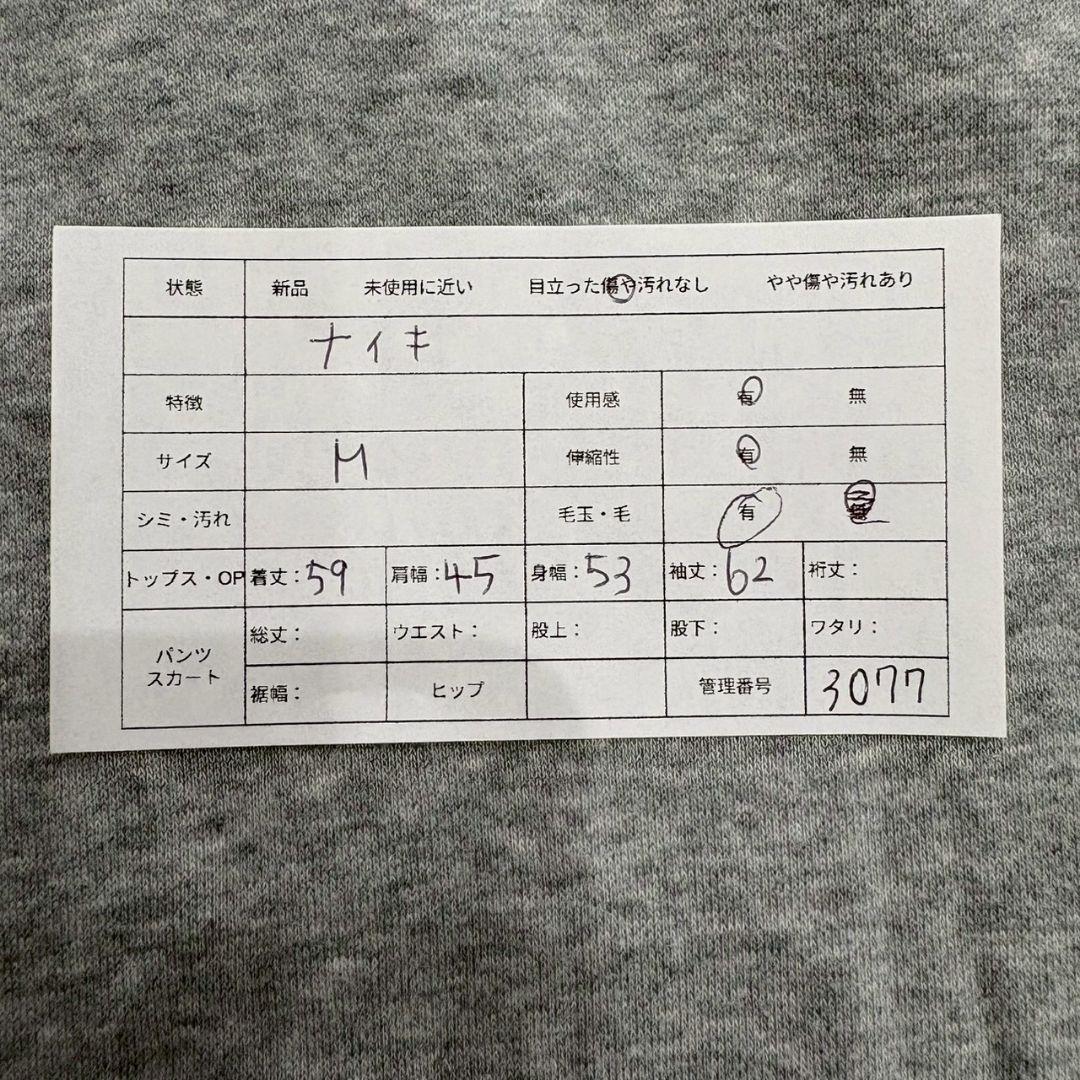 状態 新品 未使用に近い 目立った傷や汚れなし やや傷や汚れあり
ナイキ
特徴 使用感 有 無
サイズ M 伸縮性 有 無
シミ・汚れ 毛玉・毛 有 無
トップス・OP 着丈:59 肩幅:45 身幅:53 袖丈:62 裄丈:
パンツ スカート 総丈: ウエスト: 股上: 股下: ワタリ:
裾幅: ヒップ 管理番号 3077